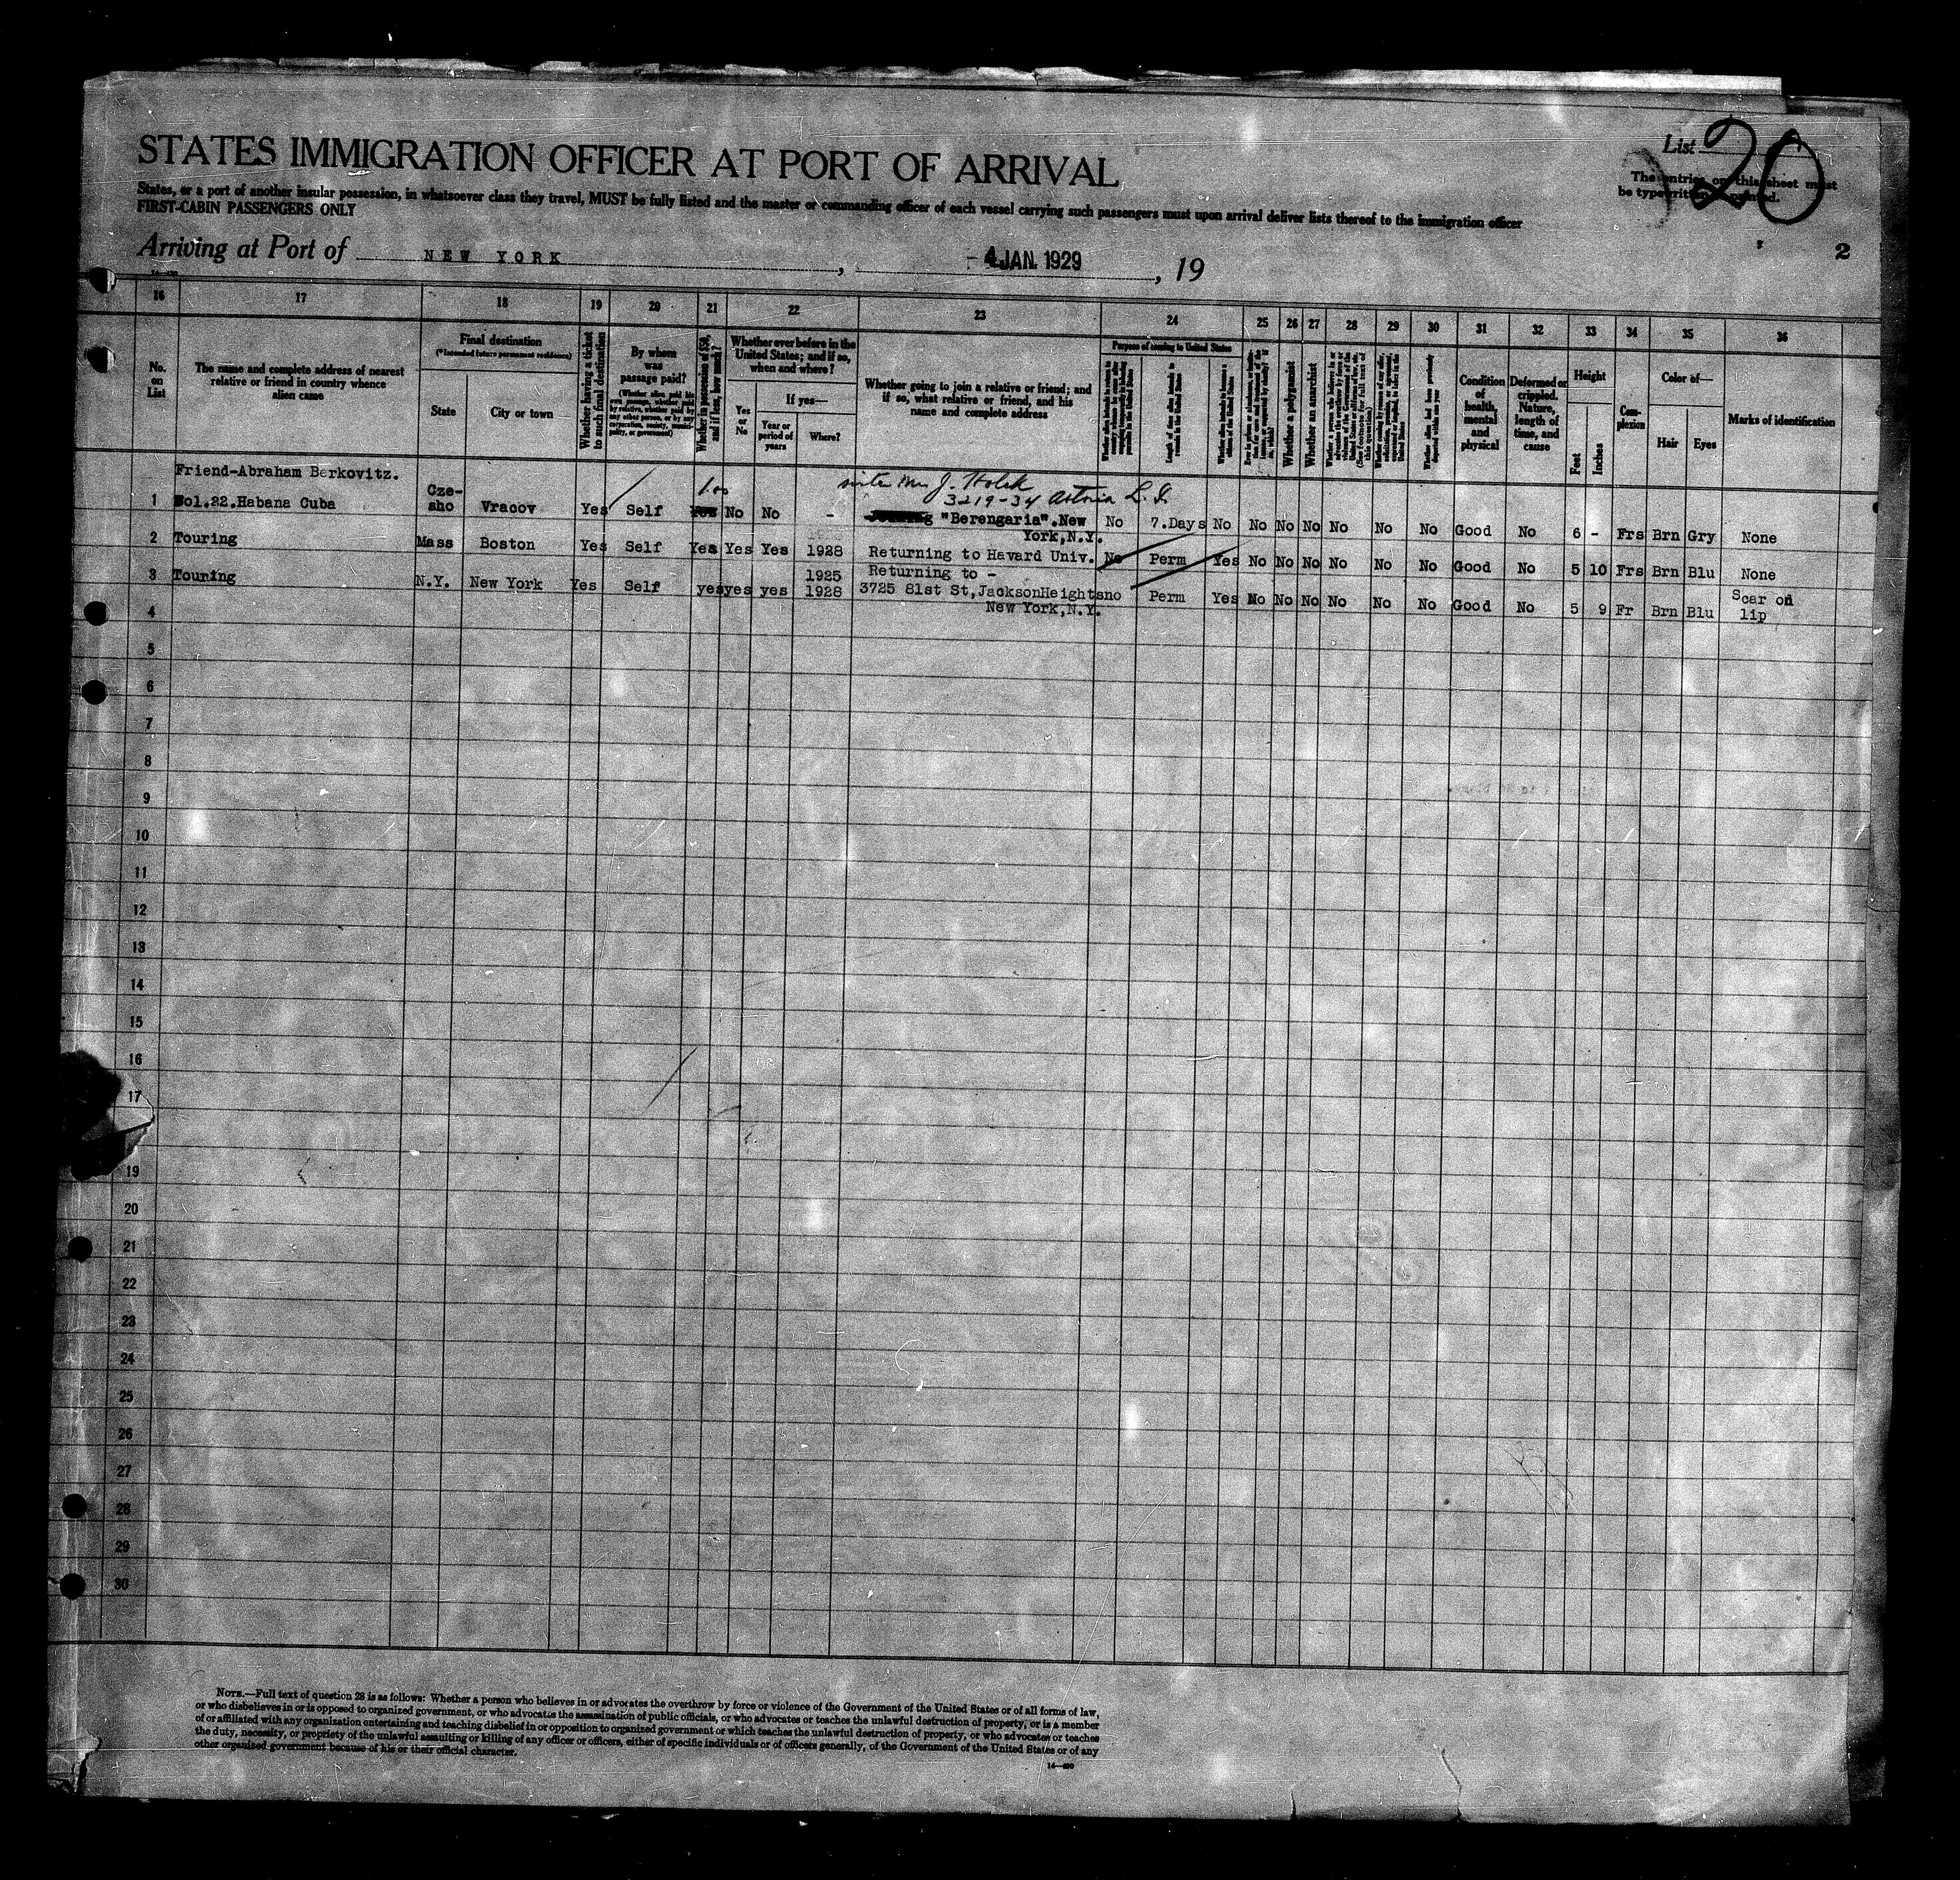 STATES IMMIGRATION OFFICER AT PORT OF ARRIVAL
List 20
The entries on this sheet must
be typewritten or printed.
States, or a port of another insular possession, in whatsoever class they travel, MUST be fully listed and the master or commanding officer of each vessel carrying such passengers must upon arrival deliver lists thereof to the immigration officer
FIRST-CABIN PASSENGERS ONLY
2
Arriving at Port of NEW YORK, 4 JAN. 1929, 19
16 17 18 19 20 21 22 23 24 25 26 27 28 29 30 31 32 33 34 35 36
No. on List
The name and complete address of nearest relative or friend in country whence alien came
Final destination
(*Intended future permanent residence)
State
City or town
Whether having a ticket to such final destination
By whom was passage paid?
Whether in possession of $50, and if less, how much?
Whether ever before in the United States; and if so, when and where?
Yes or No
If yes—
Year or period of years
Where?
Whether going to join a relative or friend; and if so, what relative or friend, and his name and complete address
Purpose of coming to United States
Whether a polygamist
Whether an anarchist
Condition of health, mental and physical
Deformed or crippled. Nature, length of time, and cause
Height
Feet
Inches
Complexion
Color of—
Hair
Eyes
Marks of identification
Friend-Abraham Berkovitz.
1 Sol.22.Habana Cuba Cze-sho Vracov Yes Self 100 Yes No No - J. Holek
3219-34 Astoria L.I.
"Berengaria".New York,N.Y. No 7.Days No No No No No No No Good No 6 - Frs Brn Gry None
2 Touring Mass Boston Yes Self Yes Yes Yes 1928 Returning to Havard Univ. No Perm Yes No No No No No No Good No 5 10 Frs Brn Blu None
3 Touring N.Y. New York Yes Self yes yes yes 1925 1928 Returning to -
3725 81st St,JacksonHeights New York,N.Y. no Perm Yes No No No No No No Good No 5 9 Fr Brn Blu Scar on lip
4
5
6
7
8
9
10
11
12
13
14
15
16
17
19
20
21
22
23
24
25
26
27
28
29
30
NOTE.—Full text of question 28 is as follows: Whether a person who believes in or advocates the overthrow by force or violence of the Government of the United States or of all forms of law,
or who disbelieves in or is opposed to organized government, or who advocates the assassination of public officials, or who advocates or teaches the unlawful destruction of property, or is a member
of or affiliated with any organization entertaining and teaching disbelief in or opposition to organized government or which teaches the unlawful destruction of property, or who advocates or teaches
the duty, necessity, or propriety of the unlawful assaulting or killing of any officer or officers, either of specific individuals or of officers generally, of the Government of the United States or of any
other organized government because of his or their official character.